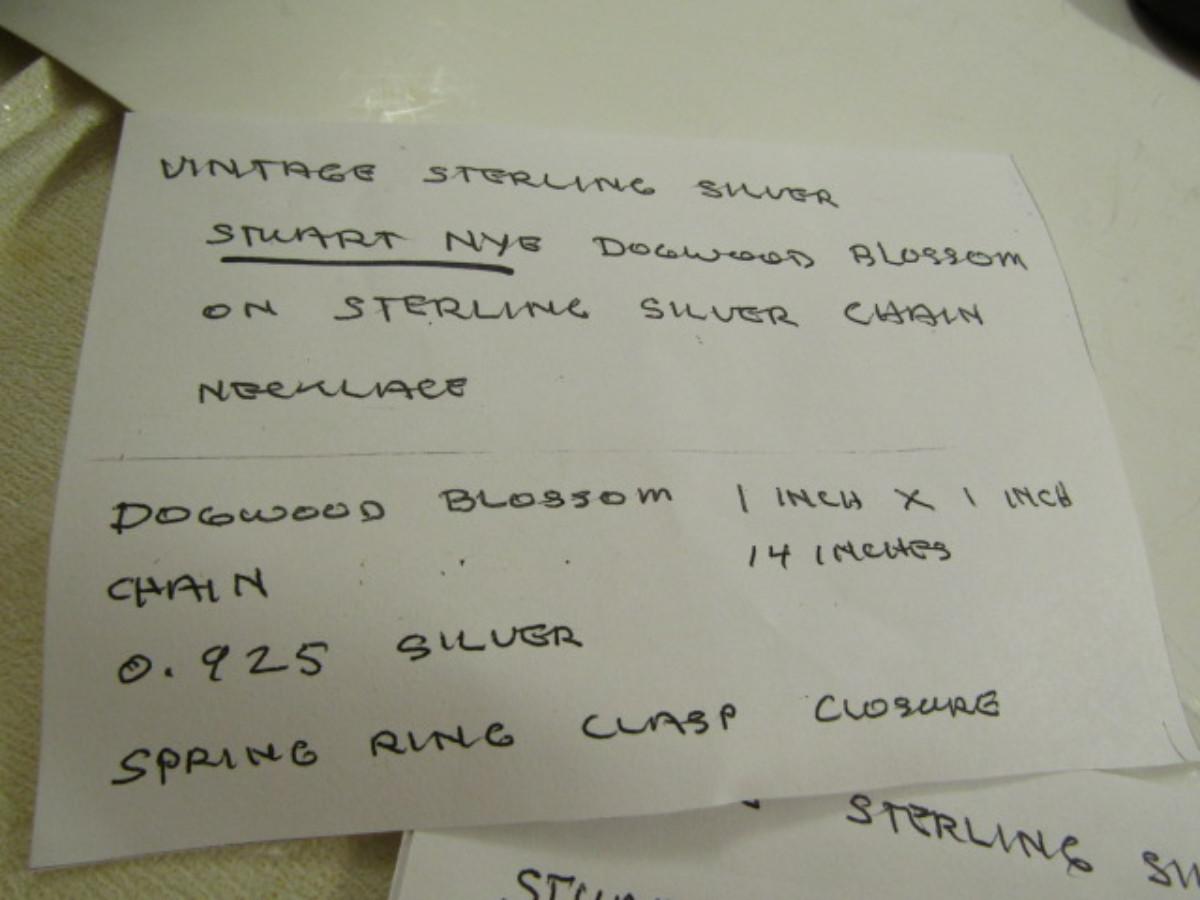 VINTAGE STERLING SILVER
STUART NYE DOGWOOD BLOSSOM
ON STERLING SILVER CHAIN
NECKLACE
DOGWOOD BLOSSOM 1 INCH X 1 INCH
CHAIN 14 INCHES
0.925 SILVER
SPRING RING CLASP CLOSURE
STERLING